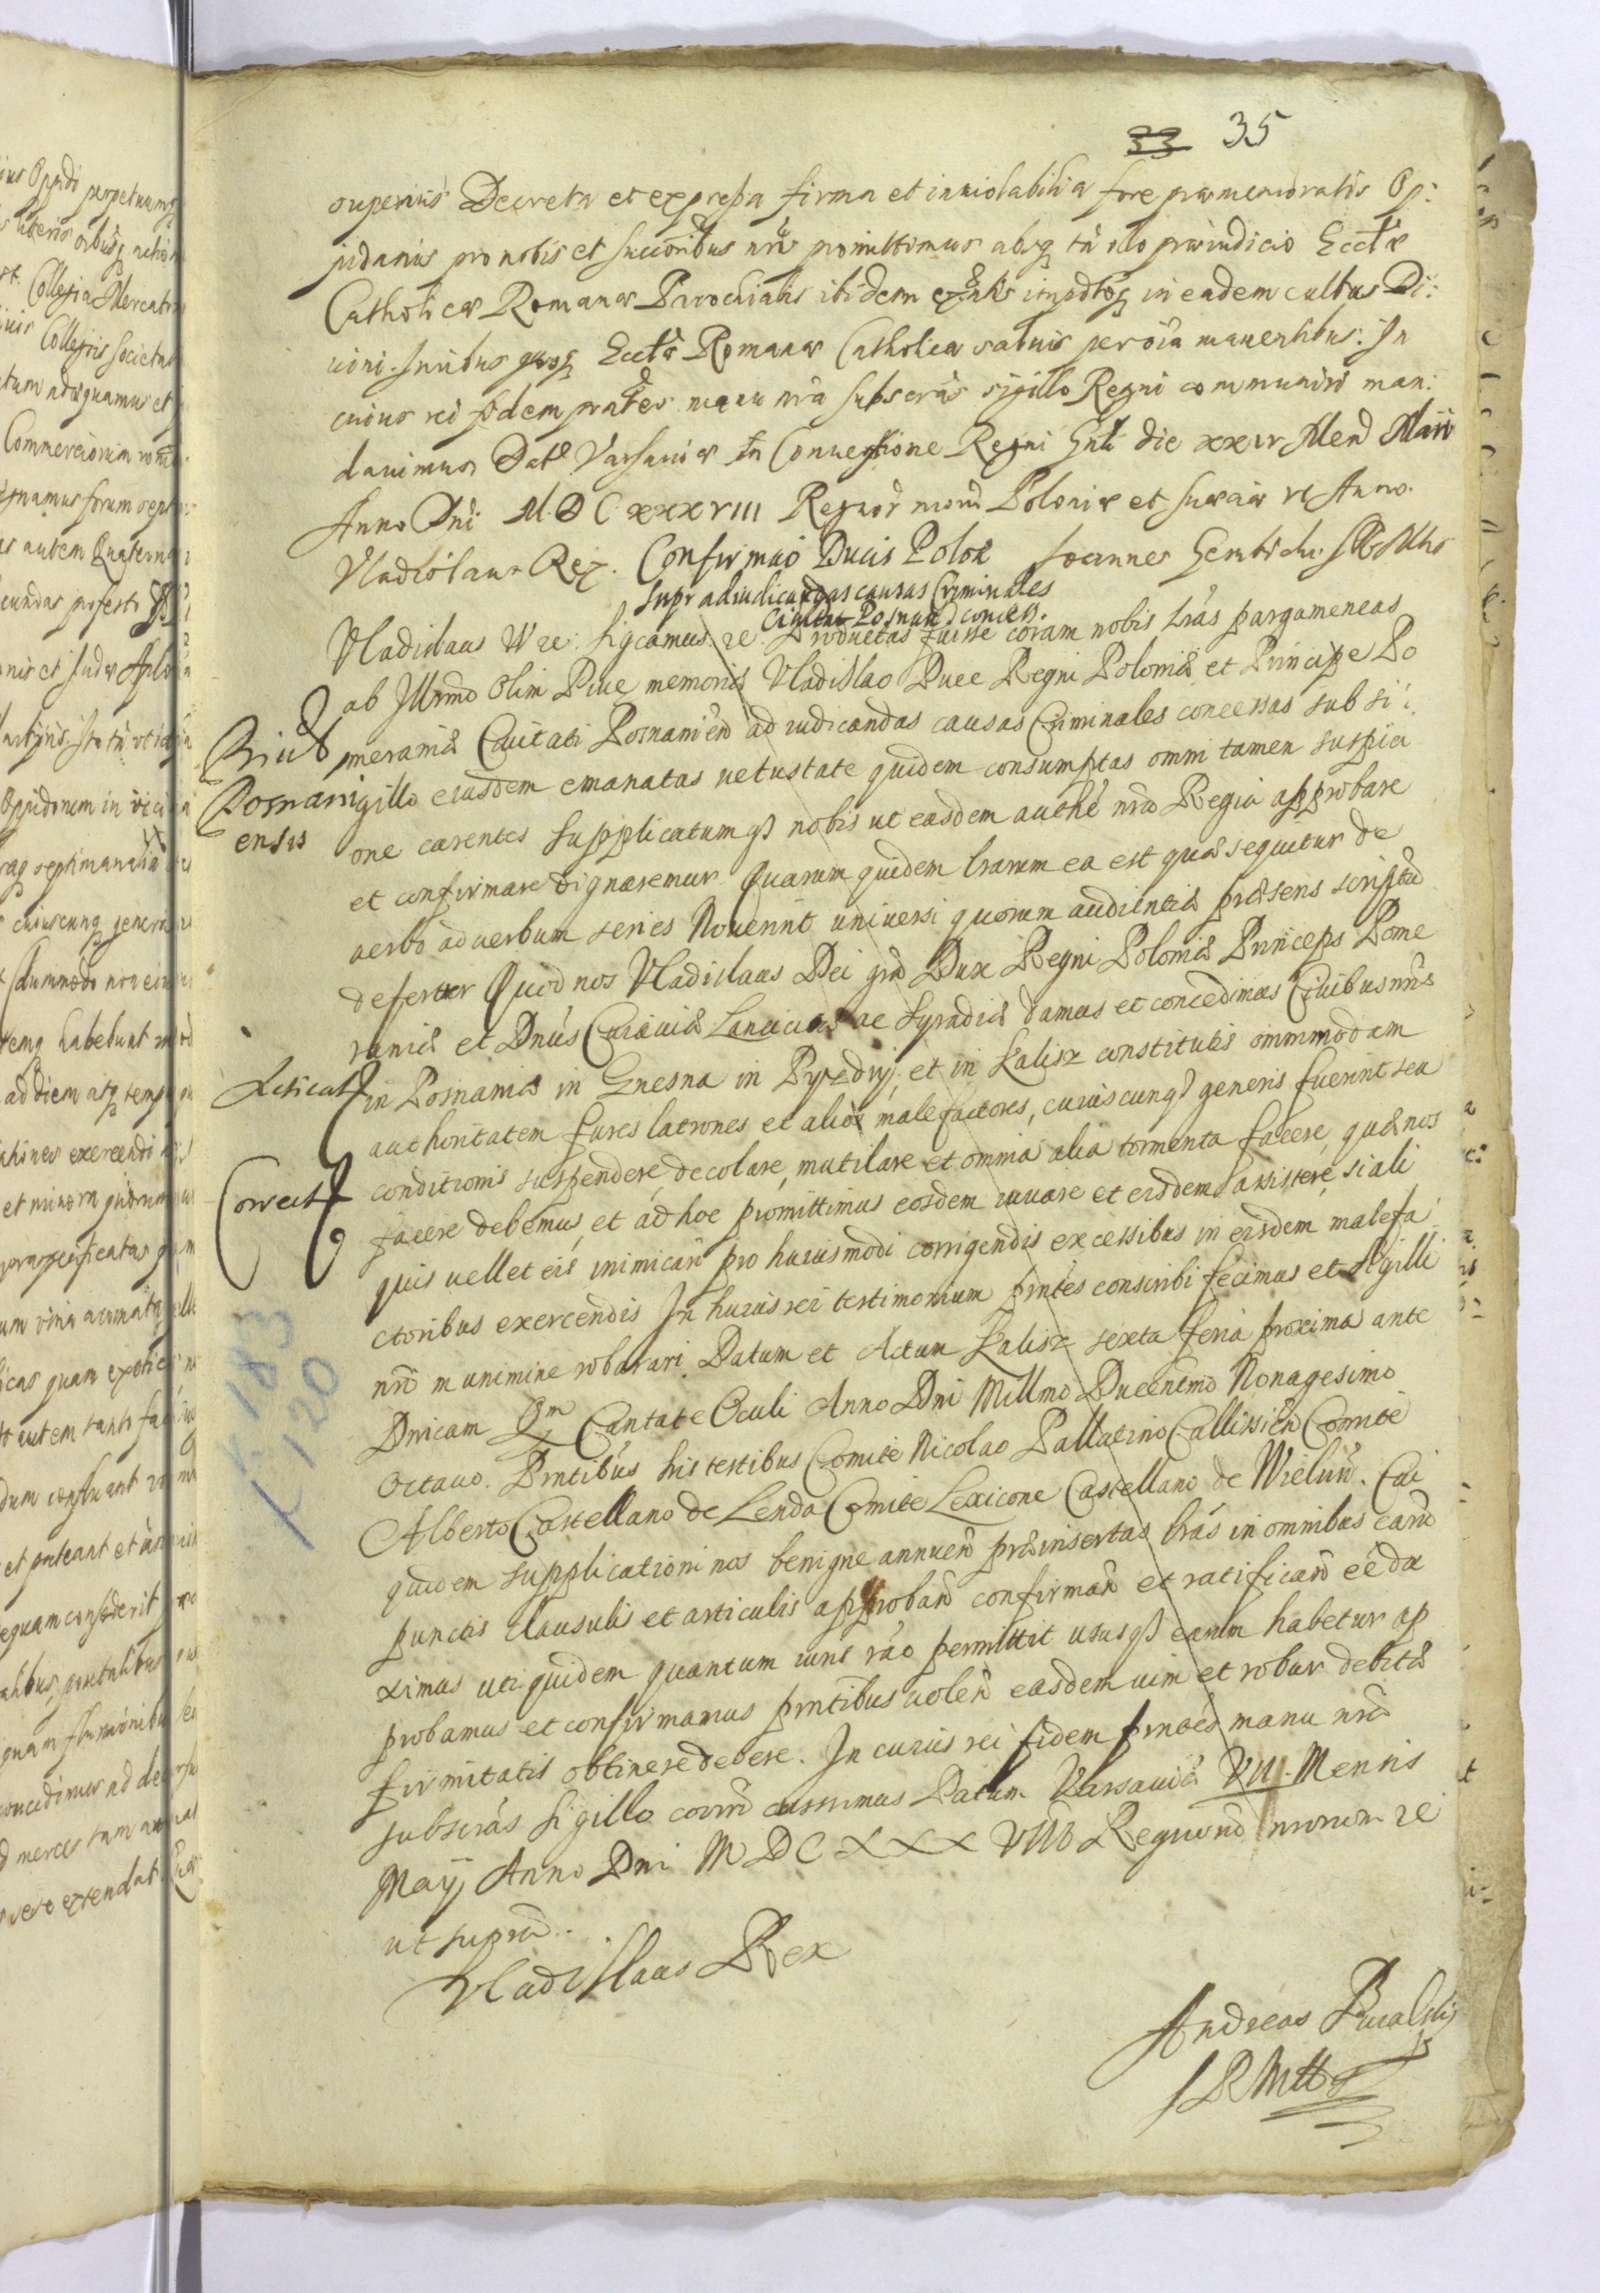 33 35
superius Decreta et expressa firma et inviolabilia fore praememoratis Op:
pidanis pro nobis et succoribus nris promittimus absq tn ullo praeiudicio Eccl'ae
Catholicae Romanae Parochialis ibidem in eadem cultus Di:
vini. Iuribus quoq Eccl'ae Romanae Catholicae salvis per oia manentibus. In
cuius rei fidem prntes manu nra subscras sigillo Regni communiri man:
davimus Dat Varsaviae In Conventione Regni Gnli die xxiv Mens Maii
Anno Dni M.D.C.xxxviii Regnor nrorum Poloniae et Sueciae vi Anno.
Vladislaus Rex. Joannes Gembicki
Confirmaõ Ducis Polon
supr adiudicandas causas Criminales
Civitati Posnan concess.
Vladislaus IV re: Sigcamus re Productas fuisse coram nobis lras pargameneas
ab Illrmo olim Piae memoriae Vladislao Duce Regni Poloniae et Principe Po
meraniae Civitati Posnanien ad iudicandas causas Criminales concessas sub si
gillo eiusdem emanatas vetustate quidem consumptas omni tamen suspici
one carentes supplicatumq3 nobis ut easdem authe nra Regia approbare
et confirmare dignaremur. Quarum quidem lrarum ea est quae sequitur de
verbo ad verbum series Noverint universi quorum audientiae praesens scriptu
defertur Quod nos Vladislaus Dei gra Dux Regni Poloniae Princeps Pome
raniae et Dnus Cuiaviae Lanciciae ac Syradiae damus et concedimus Civibus nris
in Posnania in Gnesna in Pyzdry, et in Kalisz constitutis ommimodam
authoritatem fures latrones et alios malefactores, cuiuscunq3 generis fuerint seu
conditionis suspendere, decolare, mutilare et omnia alia tormenta facere, quae nos
facere debemus, et ad hoc promittimus eosdem iuvare et eisdem assistere, si ali
quis vellet eis inimicari pro huiusmodi corrigendis excessibus in eisdem malefa
ctoribus exercendis In huius rei testimonium prntes conscribi fecimus et sigilli
nri munimine roborari. Datum et Actum Kalisz sexta feria proxima ante
Dnicam Qm Cantate Oculi Anno Dni Millmo Ducentmo Nonagesimo
Octavo. Prntibus his testibus Comite Nicolao Pallatino Callissien Comite
Alberto Castellano de Lenda Comite Lexicone Castellano de Wielun. Cui
quidem supplicationi nos benigne annuen praeinsertas lras in omnibus earu
punctis clausulis et articulis approban confirman et ratifican ee du
ximus uti quidem quantum iuris rao permittit ususq3 earum habetur ap
probamus et confirmamus prntibus volen easdem vim et robur debitae
firmitatis obtinere debere. In cuius rei fidem prntes manu nra
subscras sigillo comri iussimus Datum Varsaviae VII. Mensis
Maij Anno Dni M D C X X X VIII Regnoru nrorum re
ut supra.
Vladislaus Rex
Andreas
SRMtts
Posnani
ensis
Correct
K 183
K 120